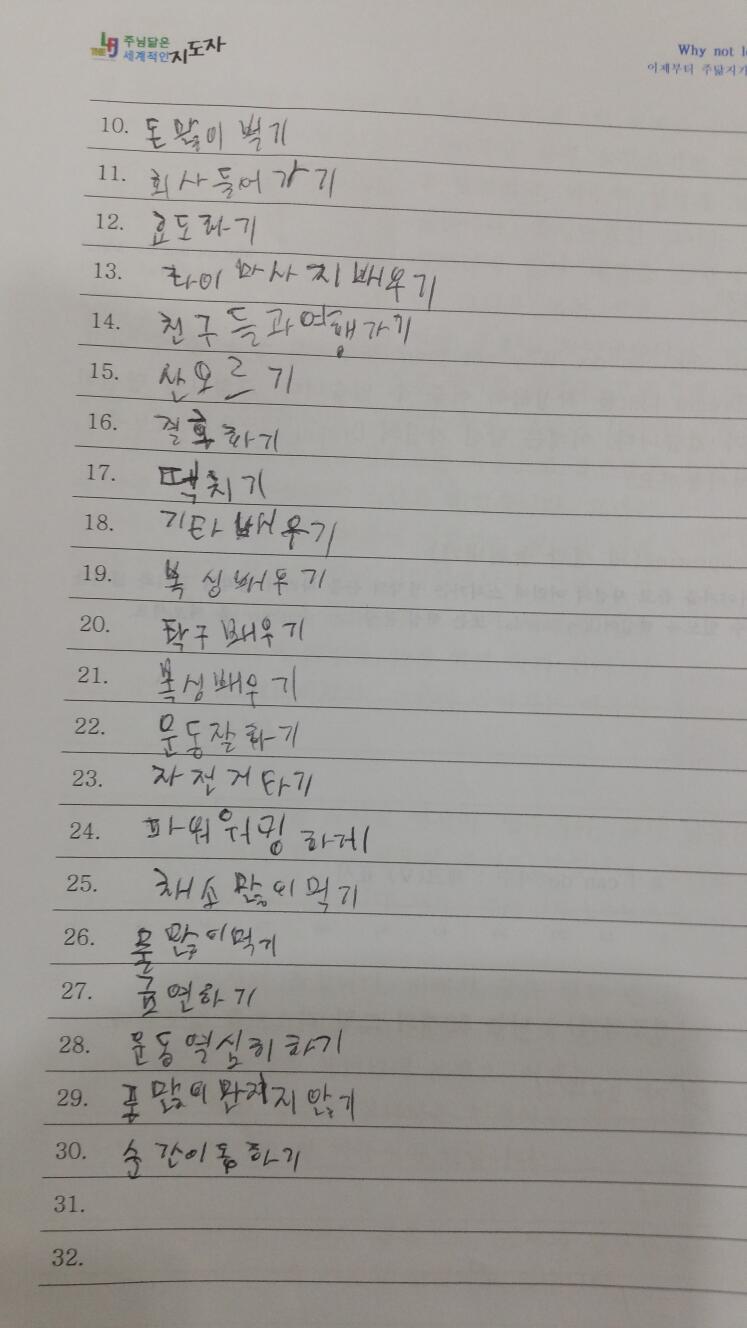 THE LJ 주님닮은 세계적인 지도자
Why not
이제부터 주닮지기
10. 돈 많이 벌기
11. 회사 들어가기
12. 효도하기
13. 타이마사지배우기
14. 친구들과여행가기
15. 산오르기
16. 결혼하기
17. 떡치기
18. 기타배우기
19. 복싱배우기
20. 탁구배우기
21. 복싱배우기
22. 운동잘하기
23. 자전거타기
24. 파워워킹하기
25. 채소많이먹기
26. 물많이먹기
27. 금연하기
28. 운동열심히하기
29. 폰많이만지지않기
30. 순간이동하기
31.
32.